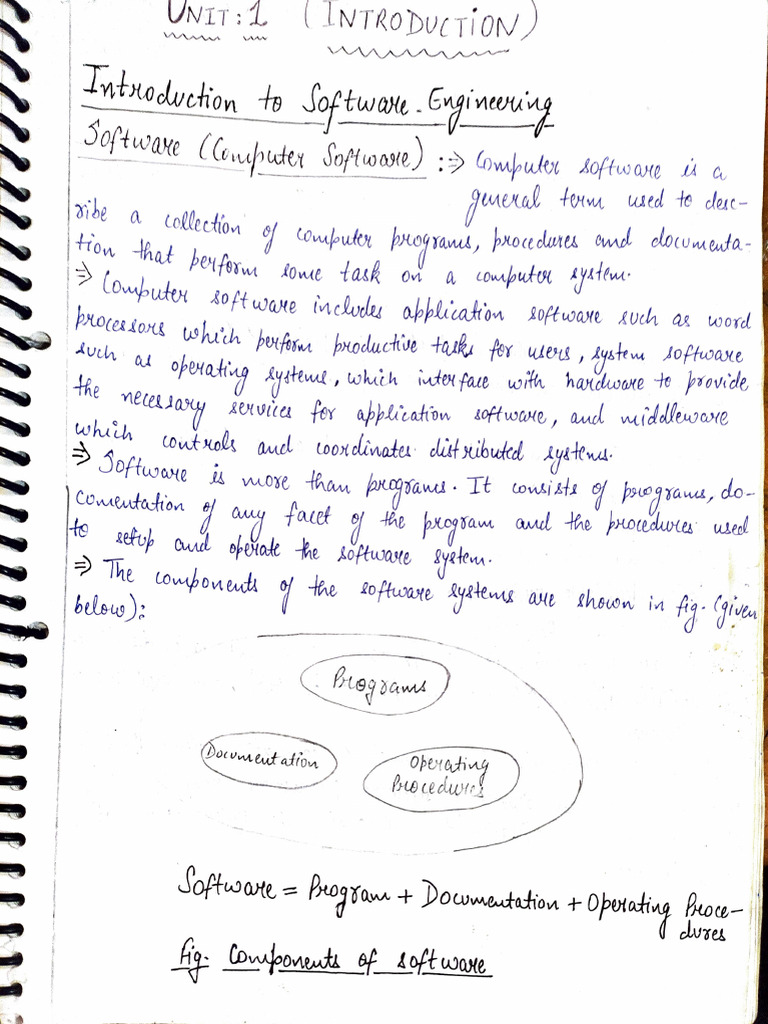 UNIT: 1 (INTRODUCTION)
Introduction to Software Engineering
Software (Computer Software) :⇒ Computer software is a
general term used to desc-
ribe a collection of computer programs, procedures and documenta-
tion that perform some task on a computer system.
⇒ Computer software includes application software such as word
processors which perform productive tasks for users, system software
such as operating systems, which interface with hardware to provide
the necessary services for application software, and middleware
which controls and coordinates distributed systems.
⇒ Software is more than programs. It consists of programs, do-
comentation of any facet of the program and the procedures used
to setup and operate the software system.
⇒ The components of the software systems are shown in fig. (given
below):
Programs
Documentation
Operating
Procedures
Software = Program + Documentation + Operating Proce-
dures
fig. Components of software